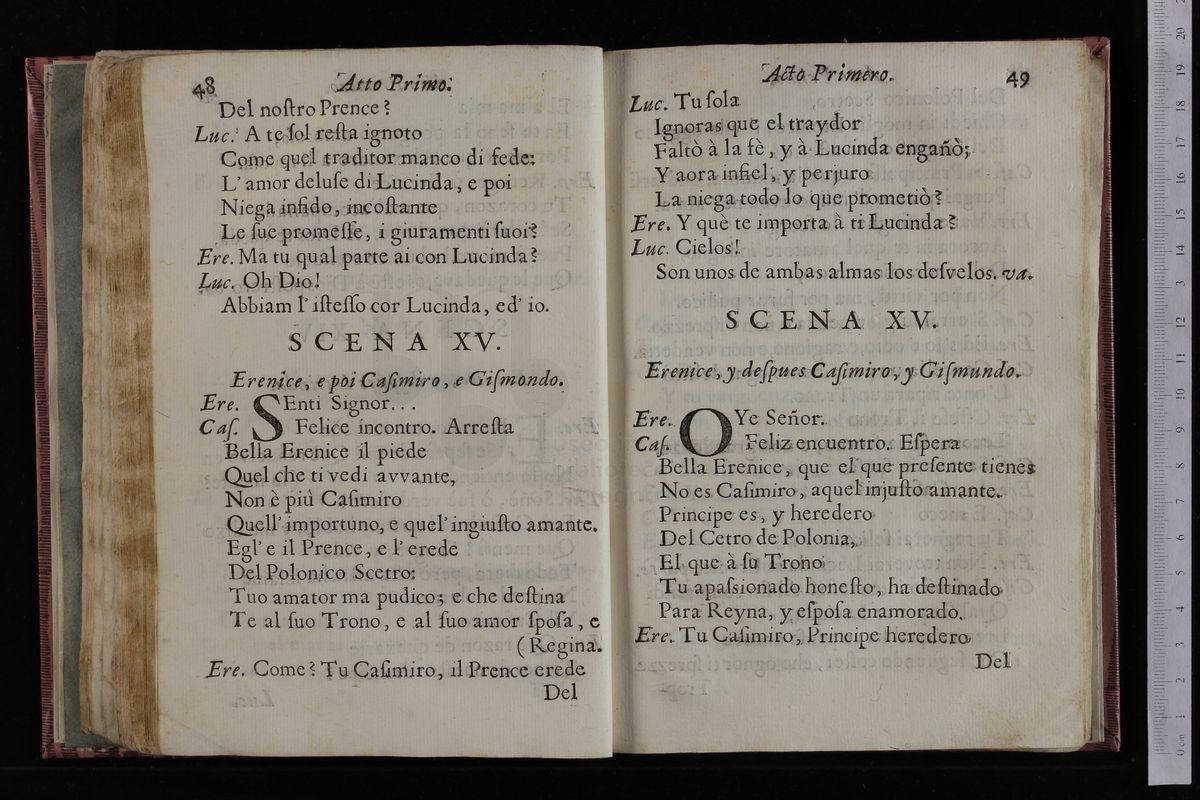 48
Atto Primo.
Del noſtro Prence?
Luc. A te ſol reſta ignoto
Come quel traditor manco di fede:
L' amor deluſe di Lucinda, e poi
Niega infido, incoſtante
Le ſue promeſſe, i giuramenti ſuoi?
Ere. Ma tu qual parte ai con Lucinda?
Luc. Oh Dio!
Abbiam l' iſteſſo cor Lucinda, ed' io.
SCENA XV.
Erenice, e poi Caſimiro, e Giſmondo.
Ere. SEnti Signor...
Caſ. Felice incontro. Arreſta
Bella Erenice il piede
Quel che ti vedi avvante,
Non è più Caſimiro
Quell' importuno, e quel' ingiuſto amante.
Egl' e il Prence, e l' erede
Del Polonico Scetro:
Tuo amator ma pudico; e che deſtina
Te al ſuo Trono, e al ſuo amor ſpoſa, e
( Regina.
Ere. Come? Tu Caſimiro, il Prence erede
Del
Acto Primero.
49
Luc. Tu ſola
Ignoras que el traydor
Faltò à la fè, y à Lucinda engañò;
Y aora infiel, y perjuro
La niega todo lo que prometiò?
Ere. Y què te importa à ti Lucinda?
Luc. Cielos!
Son unos de ambas almas los deſvelos. va.
SCENA XV.
Erenice, y deſpues Caſimiro, y Giſmundo.
Ere. OYe Señor.
Caſ. Feliz encuentro. Eſpera
Bella Erenice, que el que preſente tienes
No es Caſimiro, aquel injuſto amante.
Principe es, y heredero
Del Cetro de Polonia,
El que à ſu Trono
Tu apaſsionado honeſto, ha deſtinado
Para Reyna, y eſpoſa enamorado.
Ere. Tu Caſimiro, Principe heredero
Del
0 cm 1 2 3 4 5 6 7 8 9 10 11 12 13 14 15 16 17 18 19 20